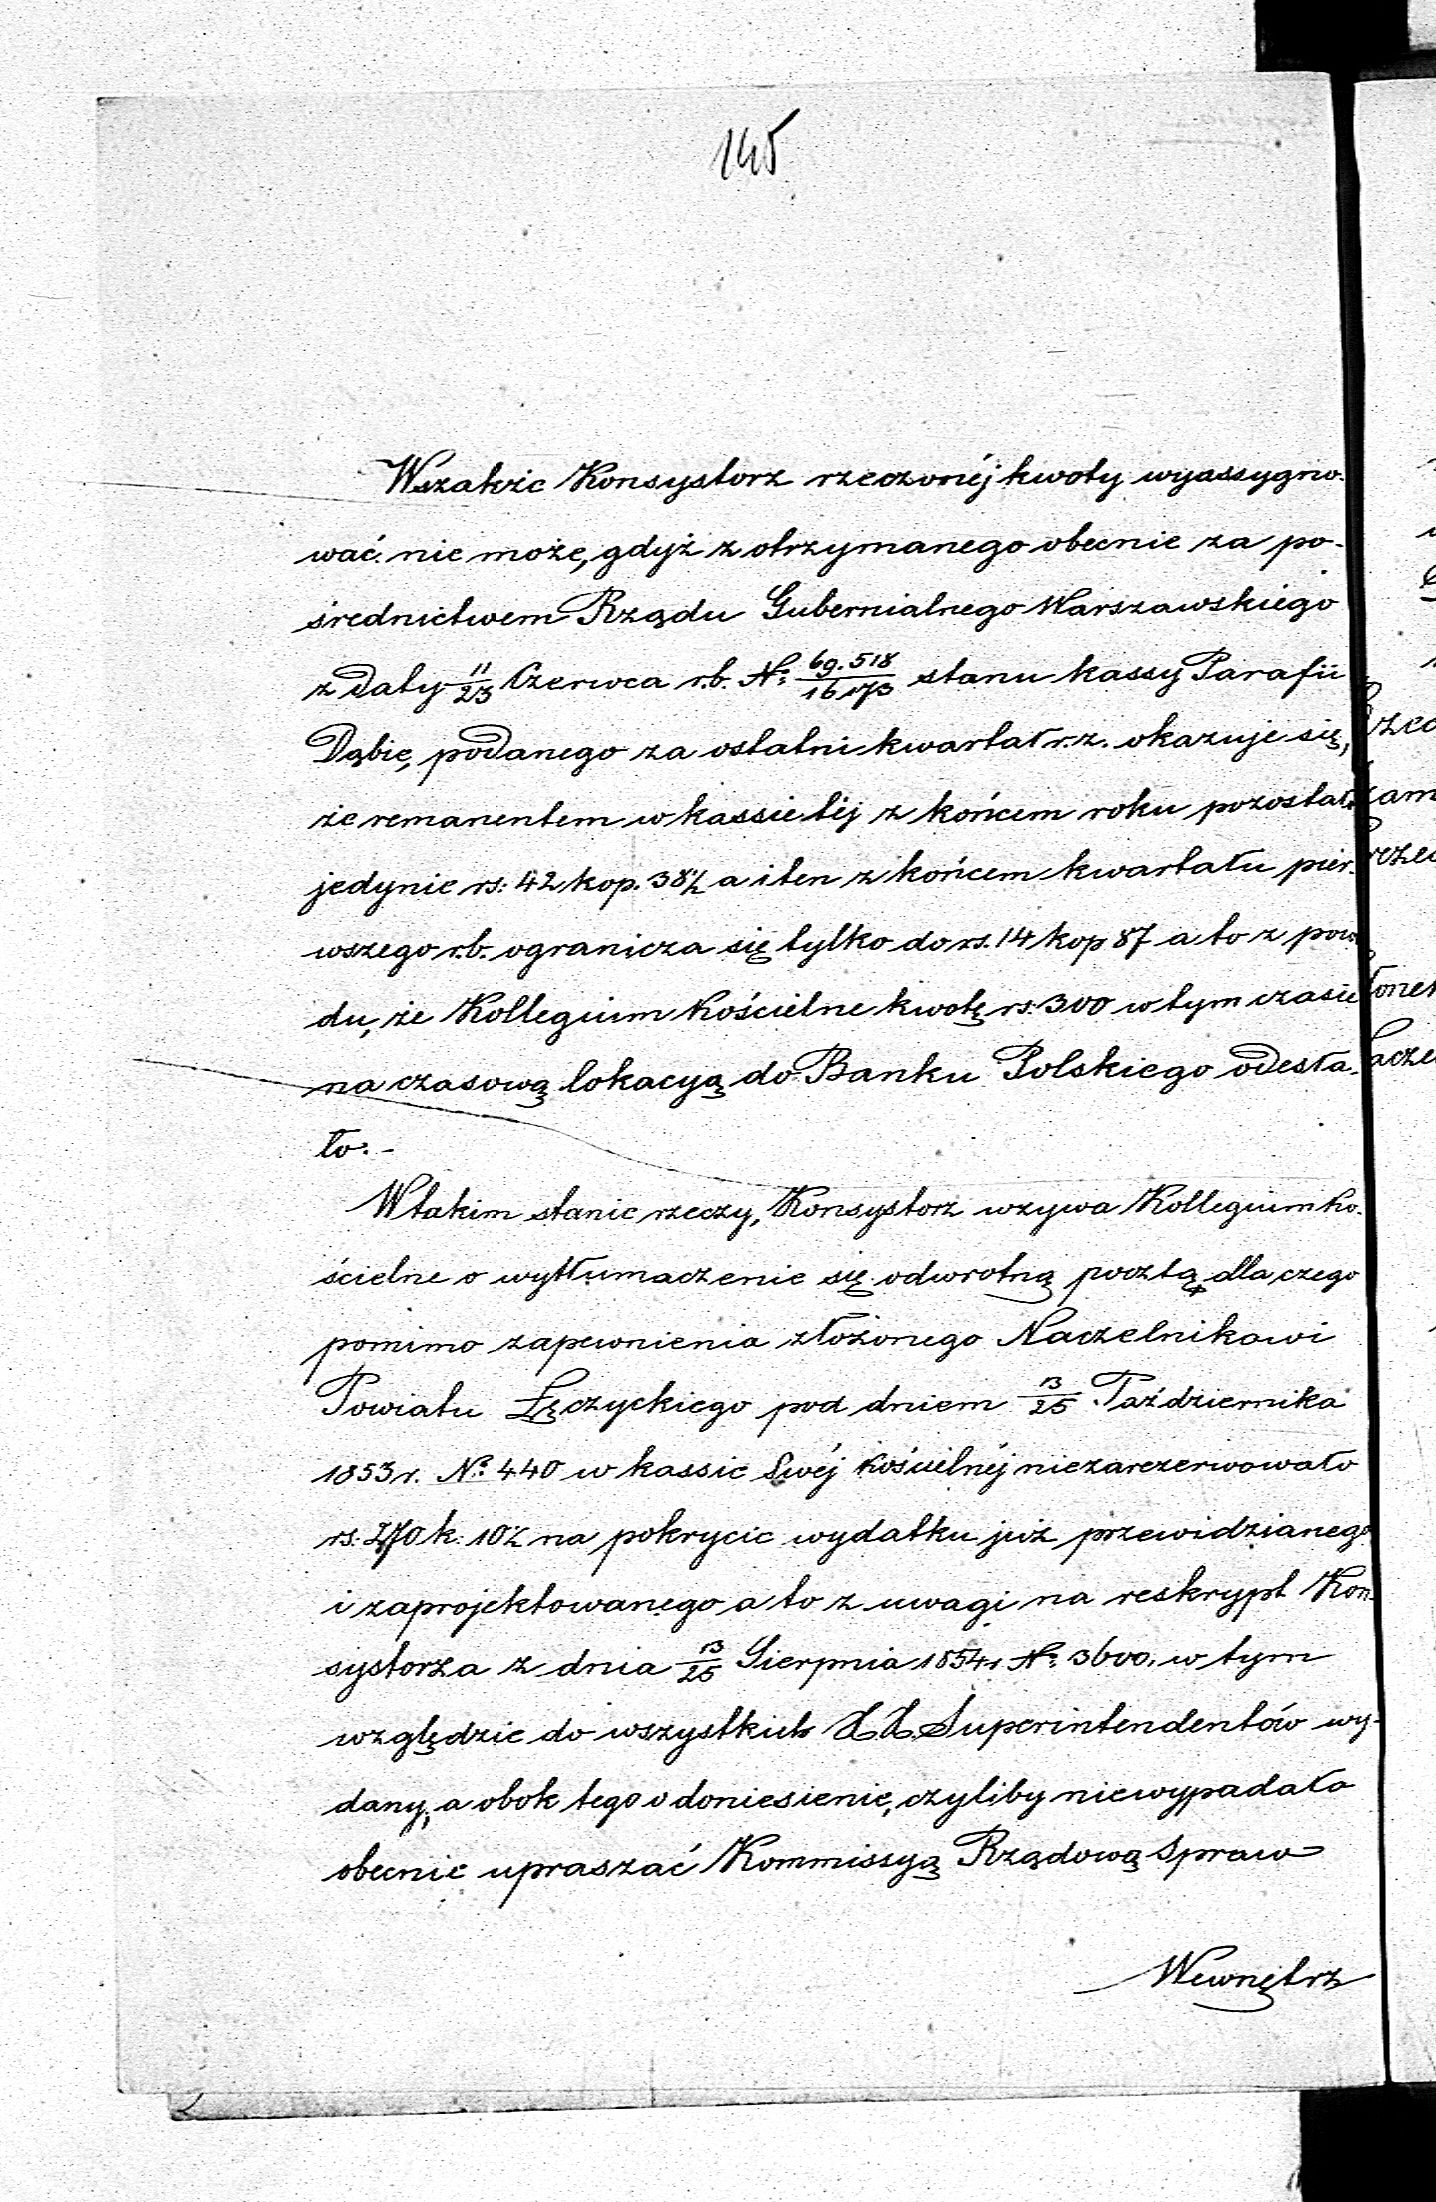 145
Wszakże Konsystorz rzeczonéj kwoty wyassygno-
wać nie może, gdyż z otrzymanego obecnie za po-
średnictwem Rządu Gubernialnego Warszawskiego
z daty 11/23 Czerwca r.b. № 69.518/16173 stanu kassy Parafii
Dąbie, podanego za ostatni kwartał r.z. okazuje się,
że remanentem w kassie téj z końcem roku pozostał
jedynie rs. 42 kop. 38½ a i ten z końcem kwartału pier-
wszego r.b. ogranicza się tylko do rs. 14 kop 87 a to z powo
du, że Kollegium Kościelne kwotę rs. 300 w tym czasie
na czasową lokacyą do Banku Polskiego odesła-
ło.-
W takim stanie rzeczy, Konsystorz wzywa Kollegium Ko-
ścielne o wytłumaczenie się odwrotną pocztą dla czego
pomimo zapewnienia złożonego Naczelnikowi
Powiatu Łęczyckiego pod dniem 13/25 Października
1853 r. № 440 w kassie Swéj Kościelnéj niezarezerwowało
rs. 270 k. 10½ na pokrycie wydatku już przewidzianego
i zaprojektowanego a to z uwagi na reskrypt Kon-
systorza z dnia 13/25 Sierpnia 1854 r № 3600. w tym
względzie do wszystkich X.X. Superintendentów wy-
dany, a obok tego o doniesienie, czyliby niewypadało
obecnie upraszać Kommissyą Rządową Spraw
Wewnętrz